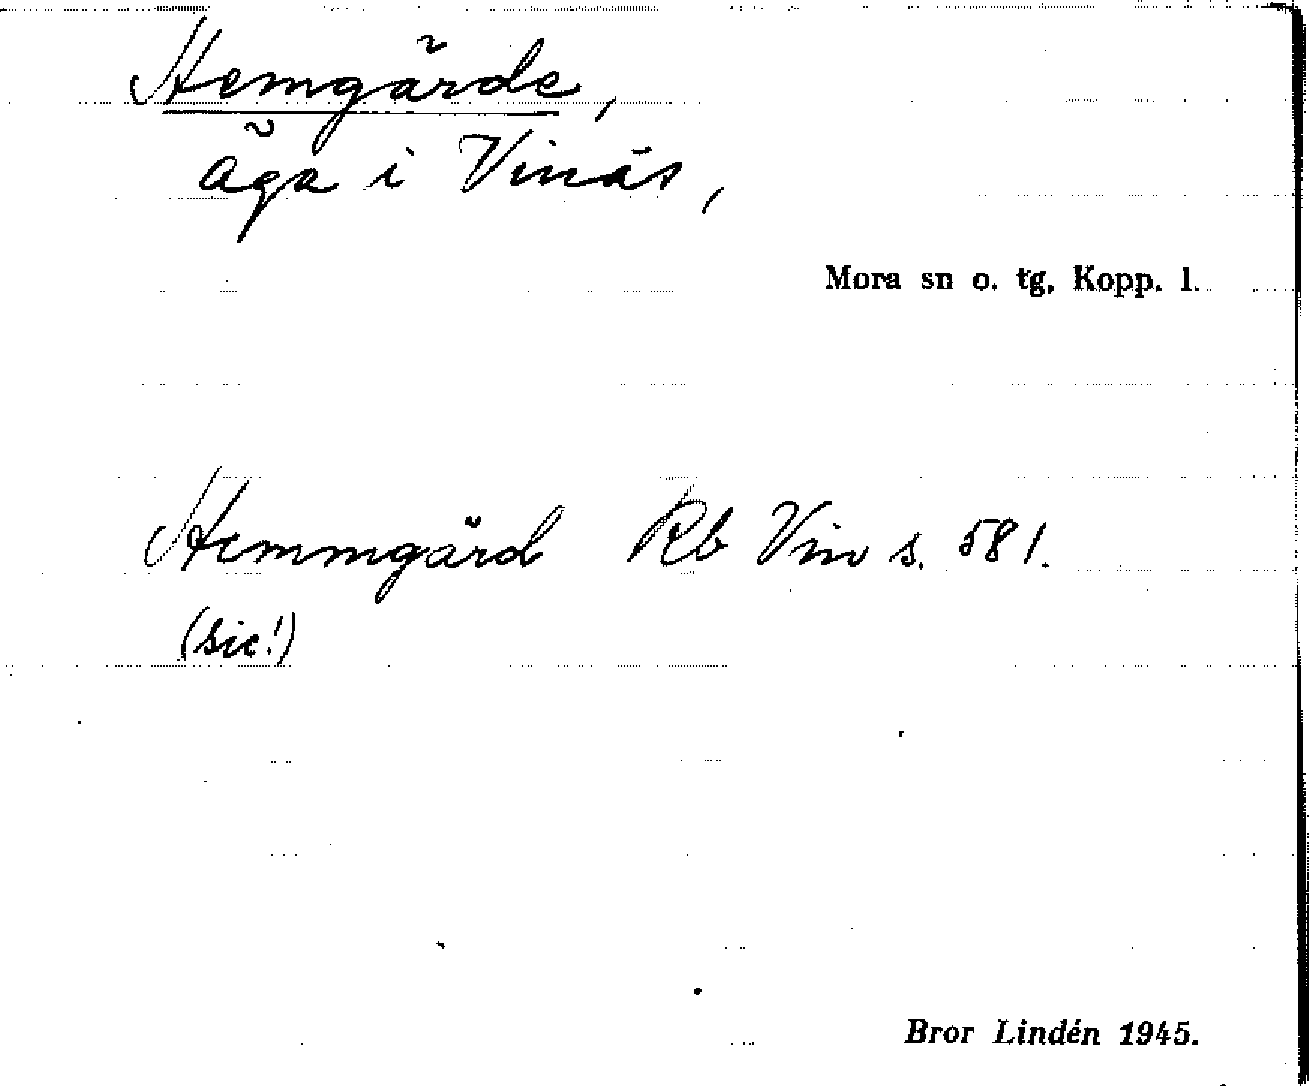 Hemgärde,
äga i Vinäs,
Mora sn o. tg, Kopp. l.
Hemmgärd Rb Vin s. 581.
(sic!)
Bror Lindén 1945.